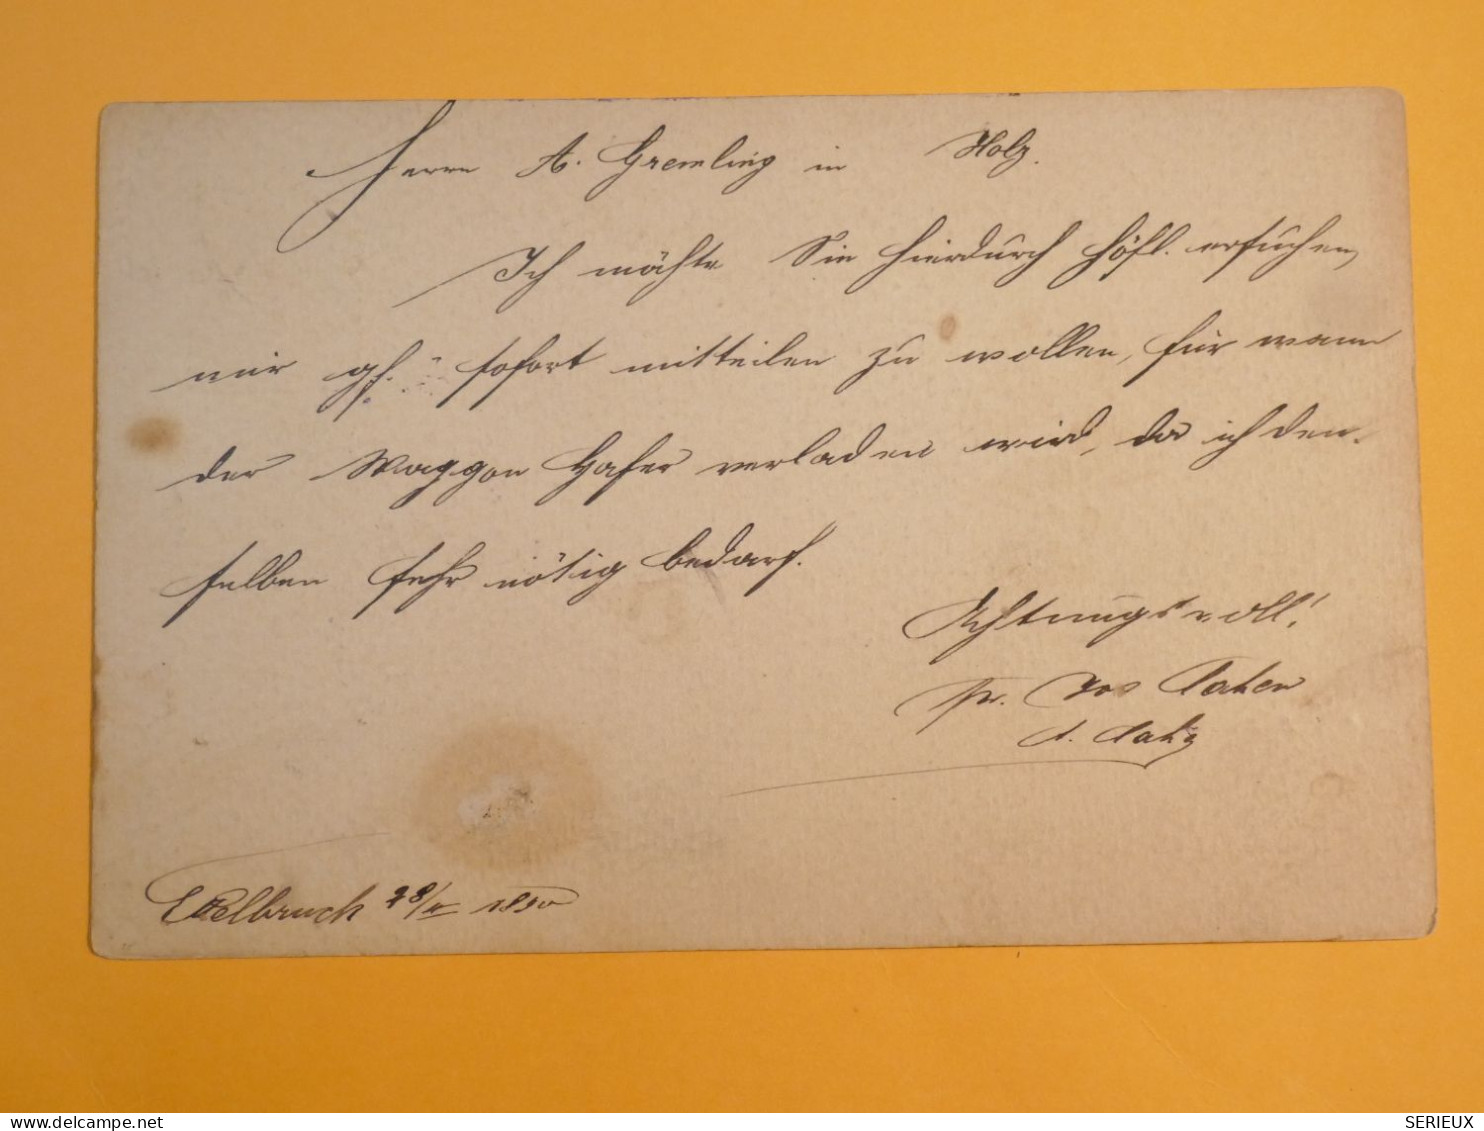 Herrn A. Gremling in Holz.
Ich möchte Sie hierdurch höfl. ersuchen,
mir gfl. sofort mitteilen zu wollen, für wann
der Waggon Hafer verladen wird, da ich den-
selben sehr nötig bedarf.
Achtungsvoll!
pr. Jos
Ettelbruck 28/ 1890
delcampe.net
SERIEUX